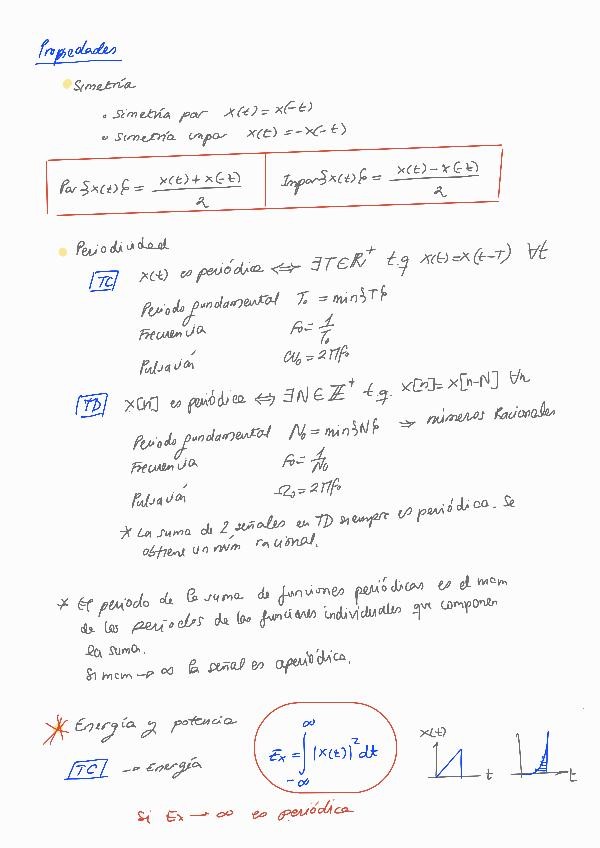 Propiedades
• Simetría
• Simetría par x(t) = x(-t)
• Simetría impar x(t) = -x(-t)
Par{x(t)} = (x(t) + x(-t)) / 2
Impar{x(t)} = (x(t) - x(-t)) / 2
• Periodicidad
TC x(t) es periódica ⟺ ∃T∈ℝ⁺ t.q x(t)=x(t-T) ∀t
Periodo fundamental T₀ = min{T}
Frecuencia f₀ = 1/T₀
Pulsación ω₀ = 2πf₀
TD x[n] es periódica ⟺ ∃N∈ℤ⁺ t.q. x[n]=x[n-N] ∀n
Periodo fundamental N₀ = min{N} ⇒ números racionales
Frecuencia f₀ = 1/N₀
Pulsación Ω₀ = 2πf₀
* La suma de 2 señales en TD siempre es periódica. Se
obtiene un núm racional.
* El periodo de la suma de funciones periódicas es el mcm
de los periodos de las funciones individuales que componen
la suma.
Si mcm → ∞ la señal es aperiódica.
* Energía y potencia
TC → Energía
Ex = ∫_{-∞}^{∞} |x(t)|² dt
x(t)
t
t
Si Ex → ∞ es periódica